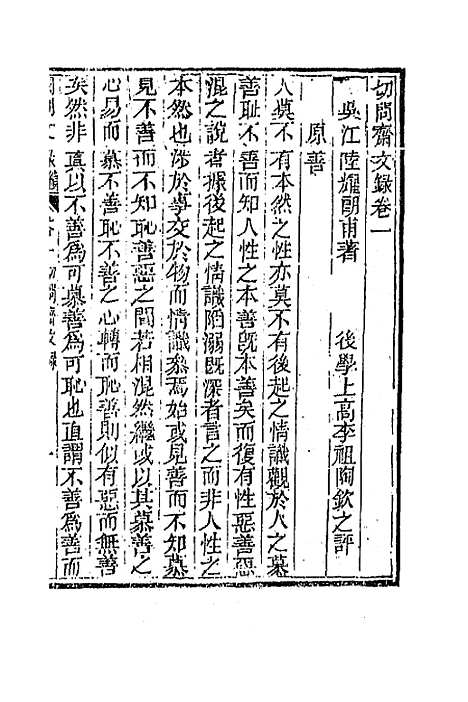 切問齋文錄卷一
吳江陸燿朗甫著　後學上高李祖陶欽之評
原善
人莫不有本然之性亦莫不有後起之情識觀於人之慕
善耻不善而知人性之本善旣本善矣而復有性惡善惡
混之說者據後起之情識陷溺旣深者言之而非人性之
本然也涉於事交於物而情識叅焉始或見善而不知慕
見不善而不知恥善惡之間若相混然繼或以其慕善之
心易而慕不善恥不善之心轉而恥善則似有惡而無善
矣然非眞以不善爲可慕善爲可恥也直謂不善爲善而
切問齋文錄